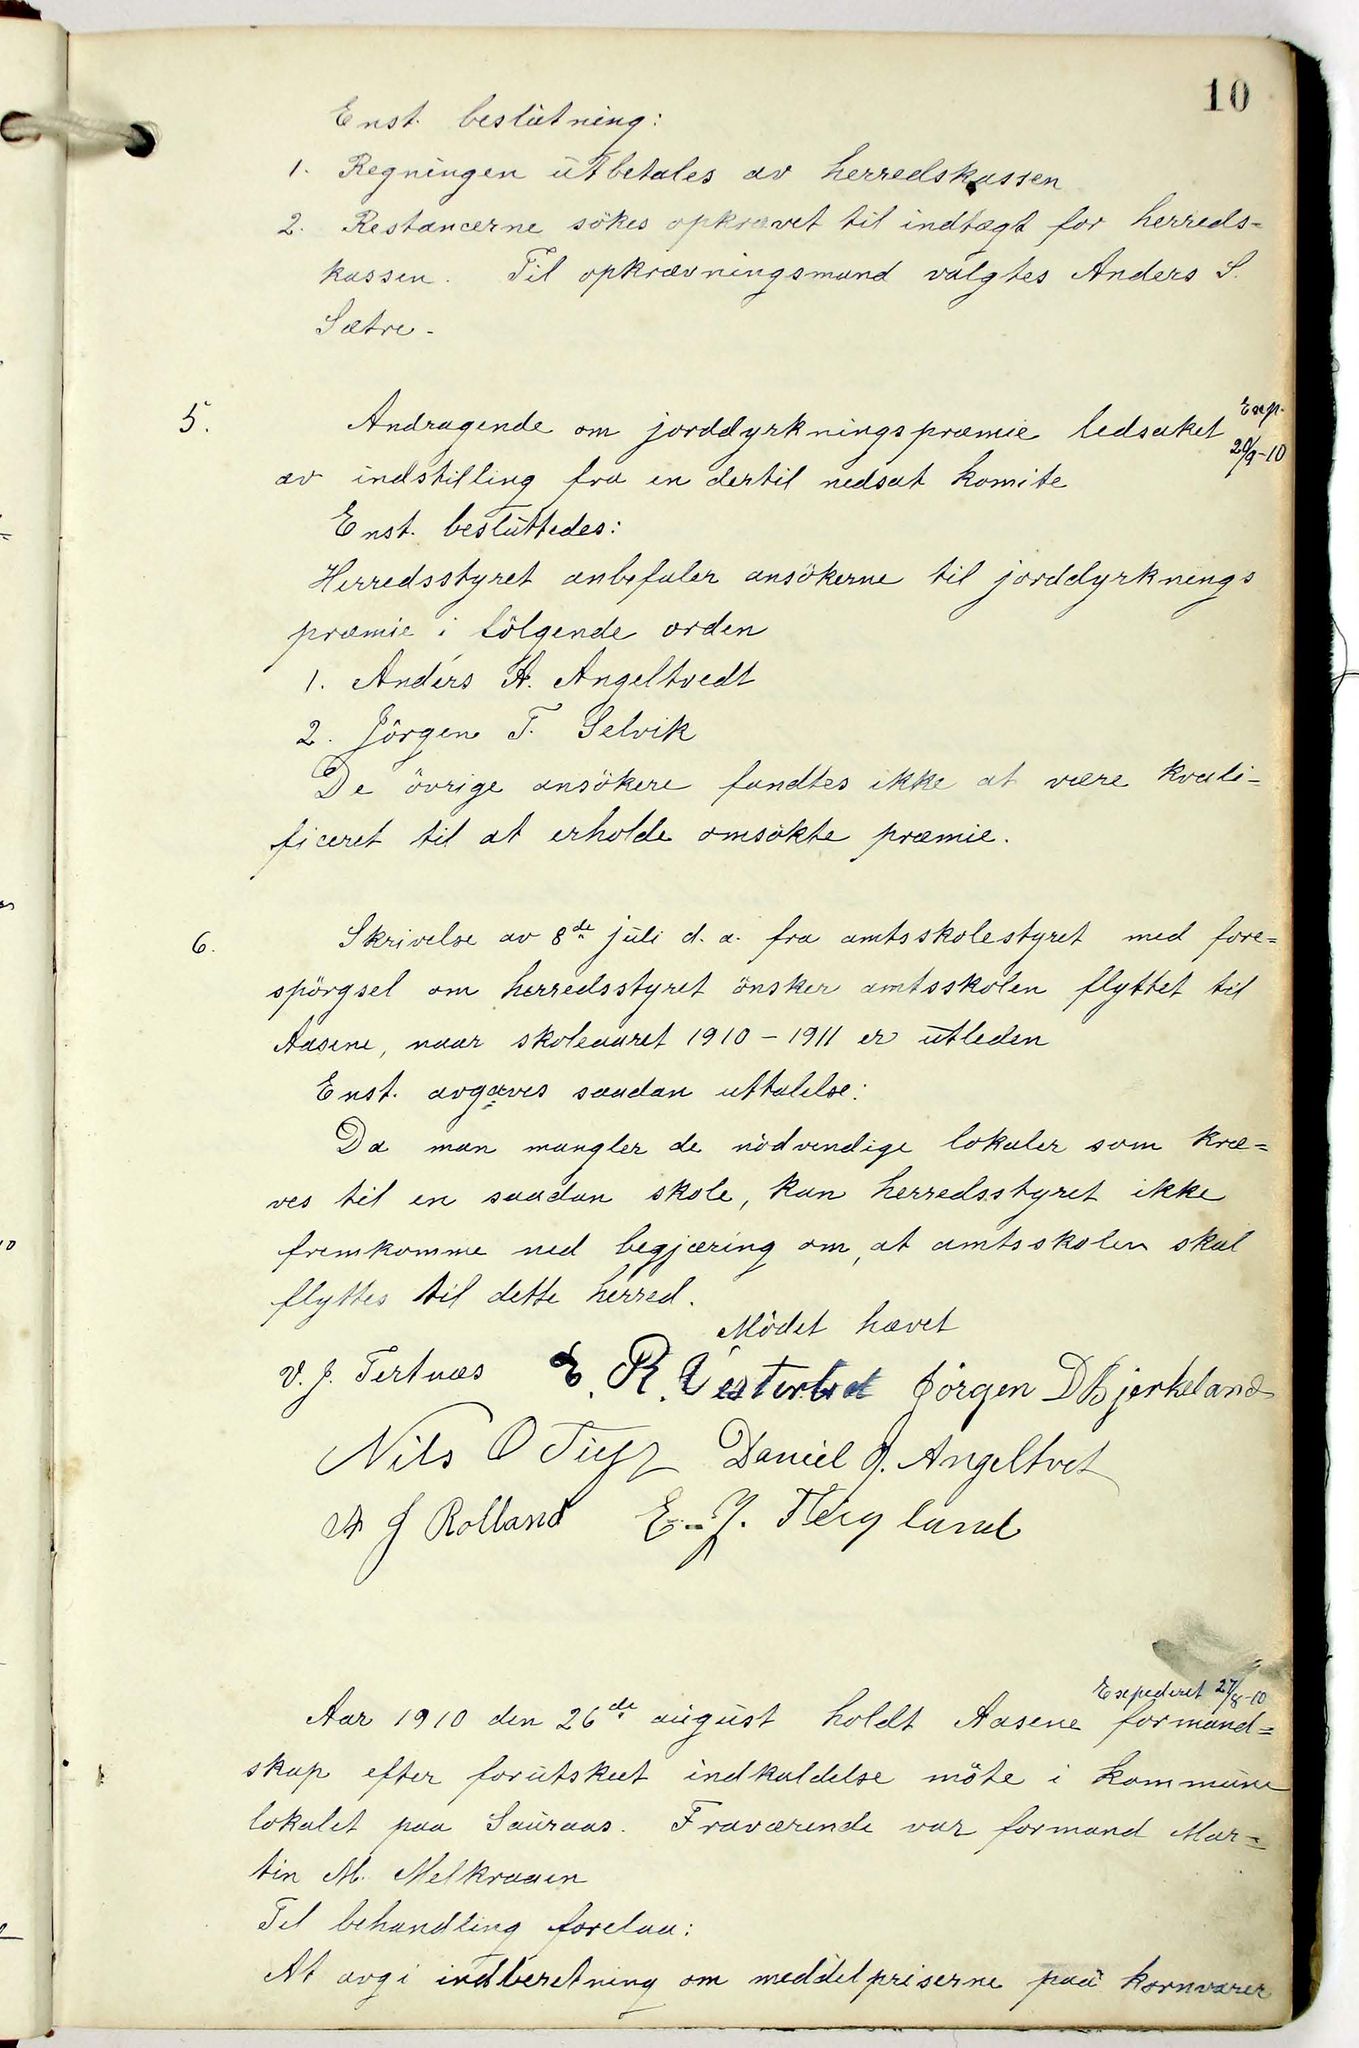 10
Enst. beslutning:
1. Regningen utbetales av herredskassen
2. Restancerne sökes opkrævet til indtægt for herreds-
kassen. Til opkrævningsmand valgtes Anders S.
Sætre.
5. Andragende om jorddyrkningspræmie ledsaket
Exp.
20/9-10
av indstilling fra en dertil nedsat komite
Enst. besluttedes:
Herredsstyret anbefaler ansökerne til jorddyrknings
præmie i fölgende orden
1. Anders A. Angeltvedt
2. Jörgen T. Selvik
De övrige ansökere fandtes ikke at være kvali-
ficeret til at erholde omsökte præmie.
6. Skrivelse av 8de juli d. a. fra amtsskolestyret med fore-
spörgsel om herredsstyret önsker amtsskolen flyttet til
Aasene, naar skoleaaret 1910-1911 er utleden
Enst. avgaves saadan uttalelse:
Da man mangler de nödvendige lokaler som kræ-
ves til en saadan skole, kan herredsstyret ikke
fremkomme med begjæring om, at amtsskolen skal
flyttes til dette herred.
Mödet hævet
V. J. Tertnæs E. R. Jörgen D Bjerkeland
Nils O Daniel J. Angeltvet
A J Rolland E. J.
Expederet 27/8-10
Aar 1910 den 26de august holdt Aasene formand-
skap efter forutskeet indkaldelse möte i kommune
lokalet paa Sauraas. Fraværende var formand Mar-
tin M. Melkraaen
Til behandling forelaa:
At avgi indberetning om meddelpriserne paa kornvarer